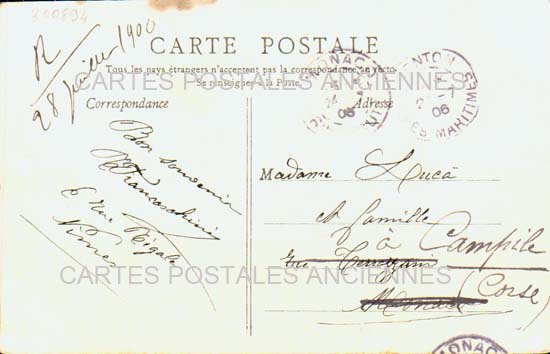 300894
R
28 février 1900
CARTE POSTALE
Tous les pays étrangers n'acceptent pas la correspondance au recto
Se renseigner à la Poste
CARTES POSTALES ANCIENNES
Correspondance
Adresse
MONACO
06
MENTON
06
ALPES MARITIMES
Bon souvenir
6 rue Régale
Nîmes
Madame Luca
et famille
à Campile
rue
Monaco
(Corse)
CARTES POSTALES ANCIENNES
MONACO